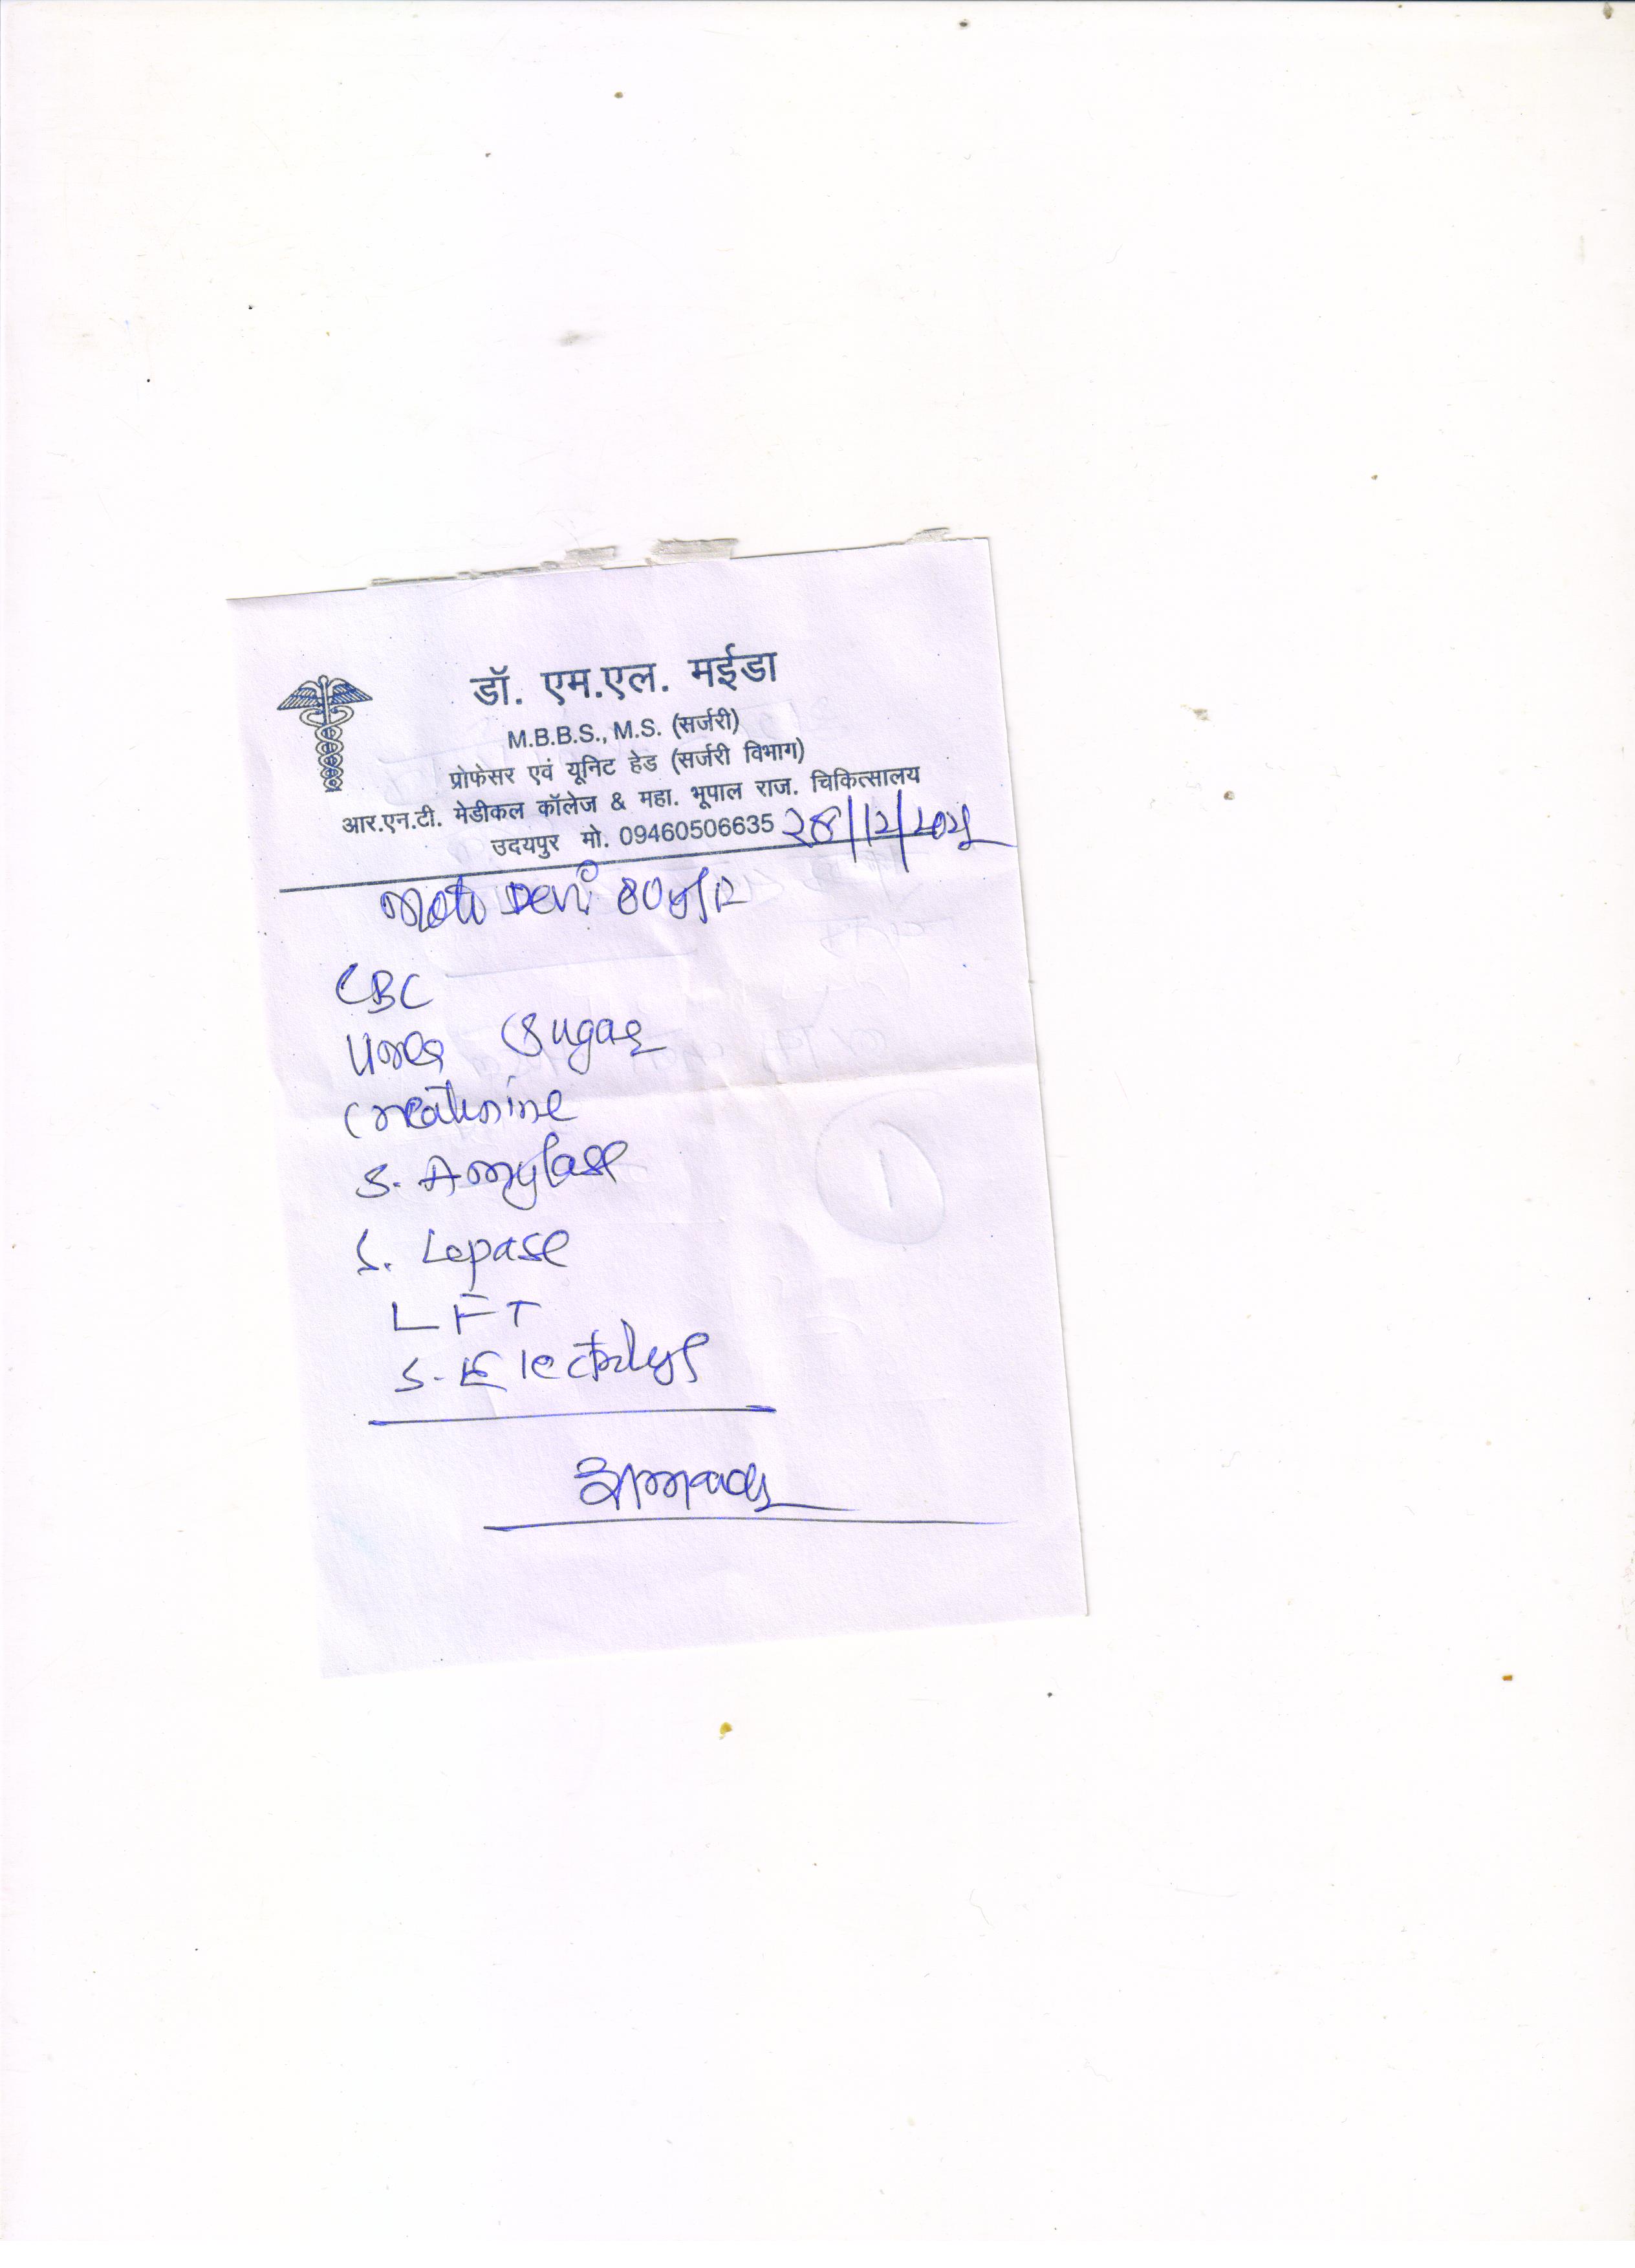 डॉ. एम.एल. मईडा
M.B.B.S., M.S. (सर्जरी)
प्रोफेसर एवं यूनिट हेड (सर्जरी विभाग)
आर.एन.टी. मेडीकल कॉलेज & महा. भूपाल राज. चिकित्सालय
उदयपुर मो. 09460506635
Devi 80y/
CBC
Urea Sugar
Creatinine
S. Amylase
S. Lepase
LFT
S. Electrolyt